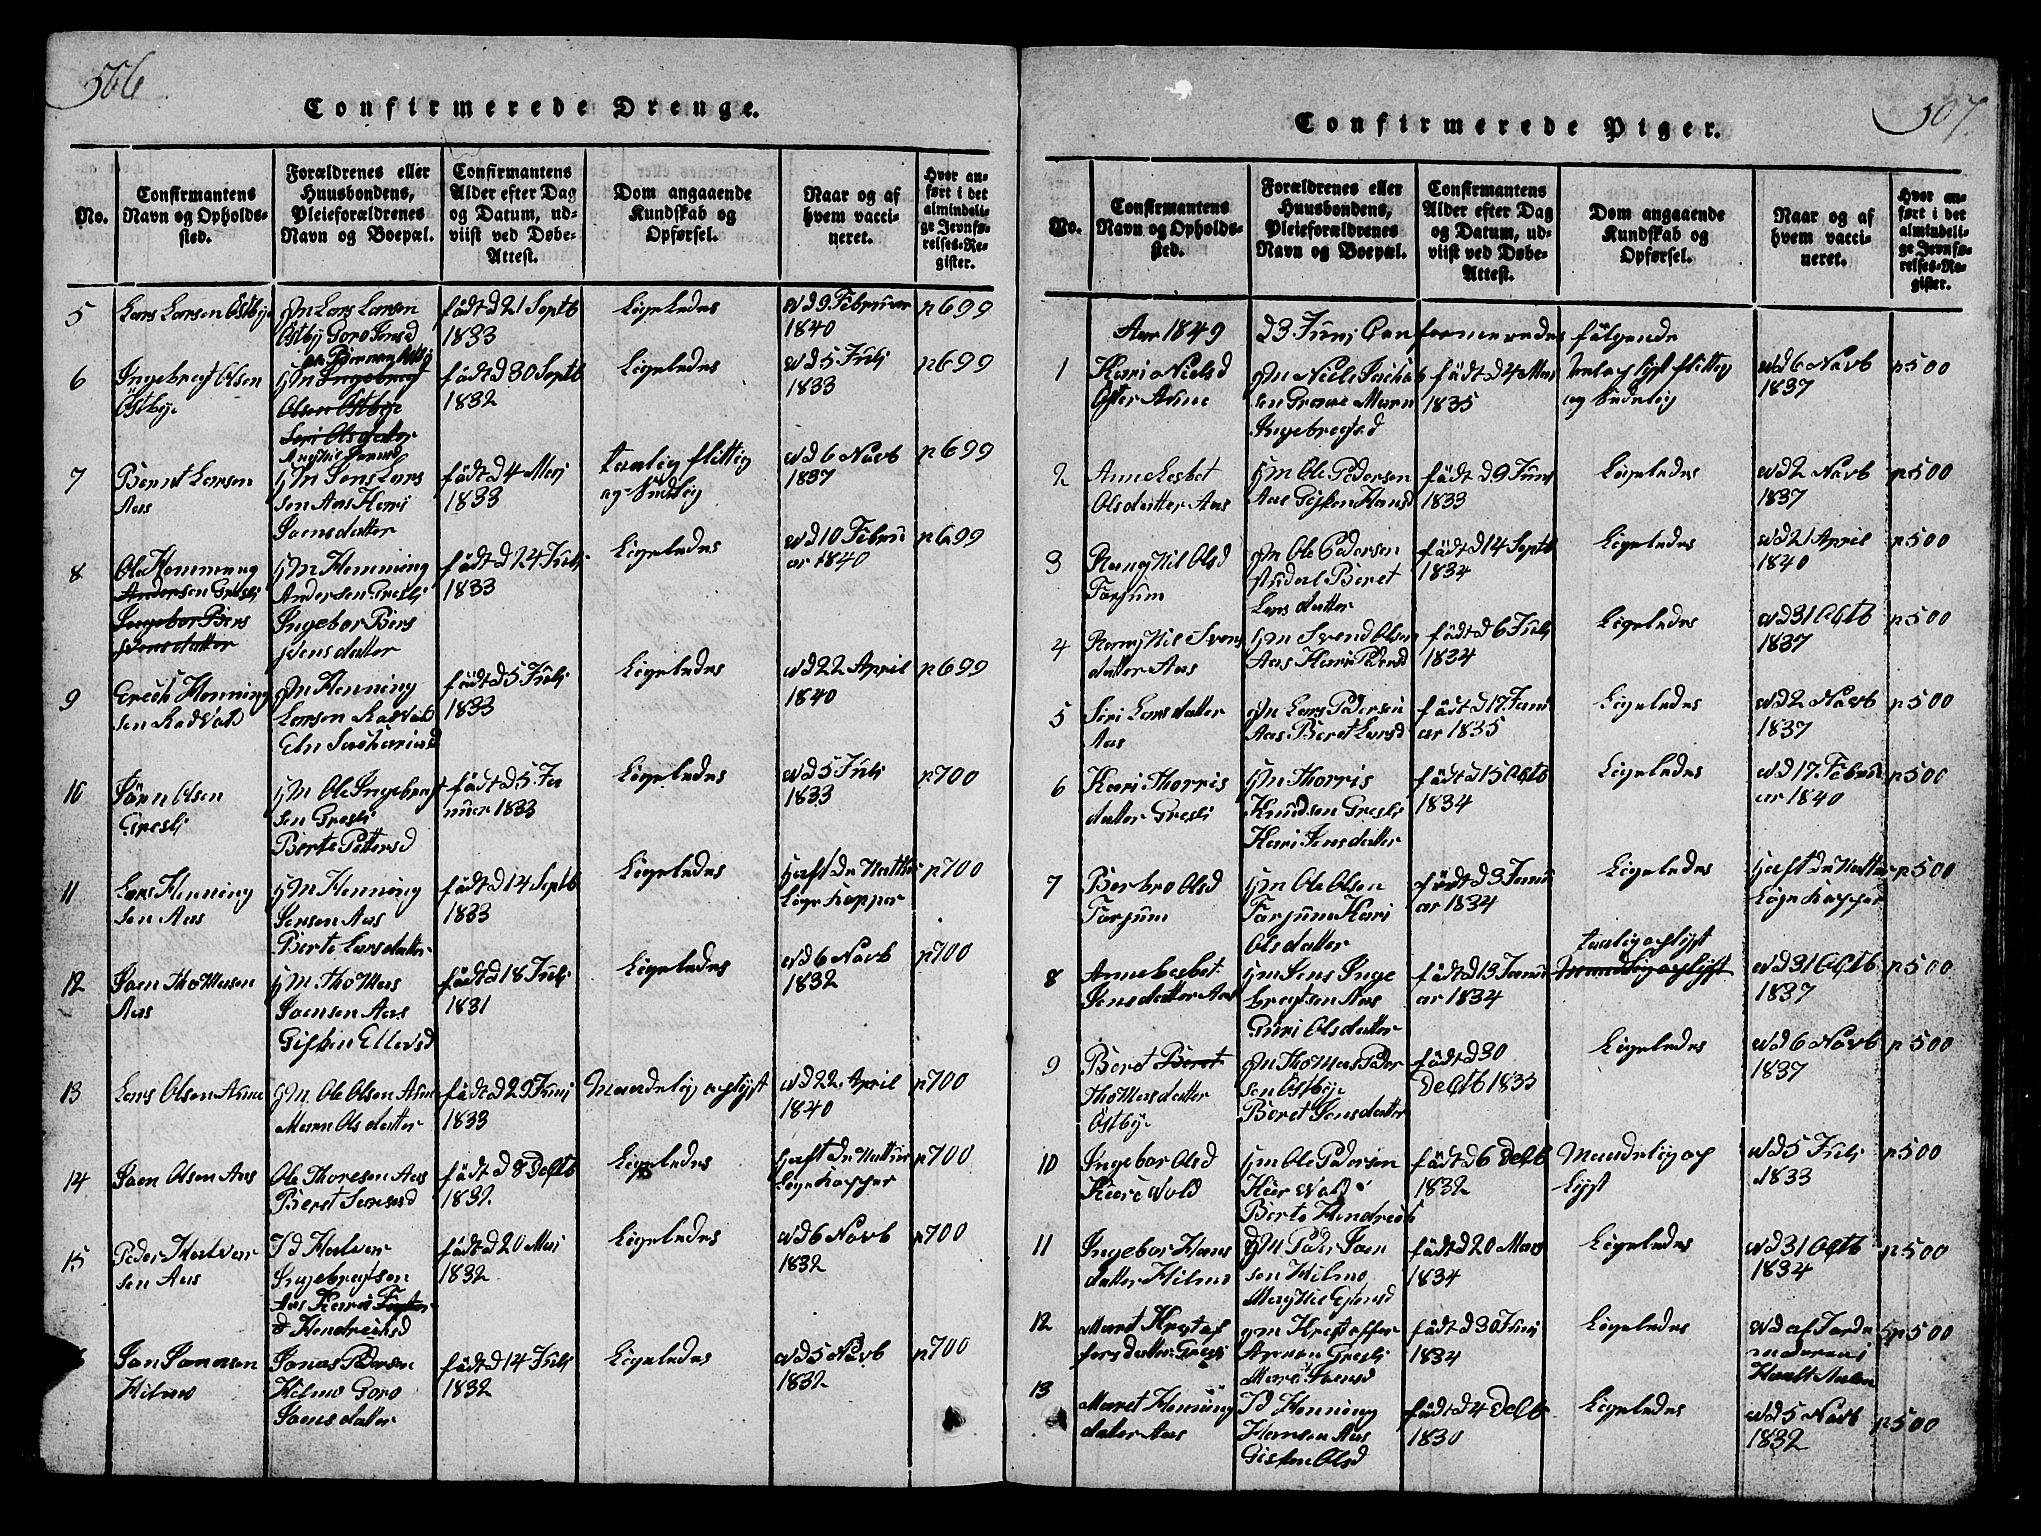 506
Confirmerede Drenge.
No.
Confirmantens
Navn og Opholds-
sted.
Forældrenes eller
Huusbondens,
Pleieforældrenes
Navn og Boepæl.
Confirmantens
Alder efter Dag
og Datum, ud-
viist ved Døbe-
Attest.
Dom angaaende
Kundskab og
Opførsel.
Naar og af
hvem vacci-
neret.
Hvor an-
ført i det
almindeli-
ge Jevnfø-
relses-Re-
gister.
5
Lars Larsen Østbye
Gm Lars Larsen
Østby Goro Jensd
født d 21 Septb
1833
Ligeledes
vd 9 Februar
1840
p 699
6
Ingebregt Olsen
Østbye
Gm Ingebregt
Olsen Østbye
Siri Olsdatter
født d 30 Septb
1832
Ligeledes
vd 5 Juli
1833
p 699
7
Bernt Larsen
Aas
Gm Jens Lars
sen Aas Kari
Joensdatter
født d 4 Mai
1833
temlig flittig
og sædelig
vd 6 Novb
1837
p 699
8
Ole Hemming
Andersen Gresli
Ingebor Pers
Jensdatter
Gm Hemming
Andersen Gresli
Ingebor Pers
Jensdatter
født d 24 Juli
1833
Ligeledes
vd 10 Febru
ar 1840
p 699
9
Erich Henning
sen Rødvold
Gm Henning
Larsen Rødvold
Eln Sachariasd
født d 5 Juli
1833
Ligeledes
vd 22 April
1840
p 699
10
Jørn Olsen
Gresli
Gm Ole Ingebregt
sen Gresli
Berte Pettersd
født d 5 Ja
nuer 1833
Ligeledes
vd 5 Juli
1833
p 700
11
Lars Henning
sen Aas
Gm Henning
Jensen Aas
Berte Larsdatter
født d 14 Septb
1833
Ligeledes
Haft de Nattur
Lige Kopper
p 700
12
Joen Thommesen
Aas
Gm Thommas
Joensen Aas
Gisken Ellevsd
født d 18 Juli
1831
Ligeledes
vd 6 Novb
1832
p 700
13
Lars Olsen Aune
Gm Ole Olsen Aune
Maren Olsdatter
født d 29 Juni
1833
Maadelig oplyst
vd 22 April
1840
p 700
14
Joen Olsen Aas
Ole Thoresen Aas
Beret Jensesd
født d 8 Decbt
1832
Ligeledes
Haft de Nattur
Lige Kopper
p 700
15
Peder Halvor
sen Aas
Td Halvor
Ingebregtsen
Aas Kari
Hendrichsd
født d 20 Mai
1832
Ligeledes
vd 6 Novb
1832
p 700
Jon Jonassen
Hilmo
Jonas Pedersen
Hilmo Goro
Joensdatter
født d 14 Juli
1832
Ligeledes
vd 5 Novb
1832
p 700
507.
Confirmerede Piger.
No.
Confirmantens
Navn og Opholds-
sted.
Forældrenes eller
Huusbondens,
Pleieforældrenes
Navn og Boepæl.
Confirmantens
Alder efter Dag
og Datum, ud-
viist ved Døbe-
Attest.
Dom angaaende
Kundskab og
Opførsel.
Naar og af
hvem vacci-
neret.
Hvor an-
ført i det
almindeli-
ge Jevnfø-
relses-Re-
gister.
Aar 1849 d 3 Juni Confirmeredes følgende
1
Kari Nielsd
Øster Aune
Gm Niels Jachob
sen Græse Marn
Ingebregtsd
født d 4 Mai
1835
vel oplyst flittig
og sædelig
vd 6 Novb
1837
p 500
2
Anne Lesbet
Olsdatter Aas
Gm Ole Pedersen
Aas Gisken Hansd
født d 9 Juni
1833
Ligeledes
vd 2 Novb
1837
p 500
3
Rangnil Olsd
Farsum
Gm Ole Pedersen
Stuedal Beret
Larsdatter
født d 14 Septb
1834
Ligeledes
vd 21 April
1840
p 500
4
Rangnil Svens
datter Aas
Gm Svend Olsen
Aas Kari Pedersd
født d 6 Juli
1834
Ligeledes
vd 31 Octb
1837
p 500
5
Siri Larsdatter
Aas
Gm Lars Pedersen
Aas Beret Larsd
født d 17 Janu
ar 1835
Ligeledes
vd 2 Novb
1837
p 500
6
Kari Thorris
datter Gresli
Gm Thorris
Knudsen Gresli
Kari Jensdatter
født d 15 Octb
1834
Ligeledes
vd 17 Febru
ar 1840
p 500
7
Berbro Olsd
Farsum
Gm Ole Olsen
Farsum Kari
Olsdatter
født d 3 Janu
ar 1834
Ligeledes
Haft de Nattur
Lige Kopper
p 500
8
Anne Lesbet
Jensdatter Aas
Gm Jens Inge
bregtsen Aas
Guri Olsdatter
født d 13 Janu
ar 1834
temlig oplyst
Maadelig oplyst
vd 31 Octb
1837
p 500
9
Beret Beret
Thommasdatter
Østbye
Gm Thommas Peder
sen Østbye
Beret Jensdatter
født d 30
Decbtb 1833
Ligeledes
vd 6 Novb
1837
p 500
10
Ingebor Olsd
Kierevold
Gm Ole Pedersen
Kierevold
Berte Hendrichsd
født d 6 Decb
1832
Maadelig op
lyst
vd 5 Juli
1833
p 500
11
Ingebor Hans
datter Hilmo
Gm Peder Joen
sen Hilmo
født d 20 Mars
1834
Ligeledes
vd 31 Octb
1834
p 500
12
Maret Krestof
forsdatter Gresli
Gm Krestoffer
Arnsen Gresli
Mari Joensd
født d 30 Juni
1834
Ligeledes
vd af Jorde
moderen i
Holt Aalen
p 500
13
Maret Henning
datter Aas
Td Henning
Hansen Aas
Gisken Olsd
født d 4 Decb
1830
Ligeledes
vd 5 Novb
1832
p 500